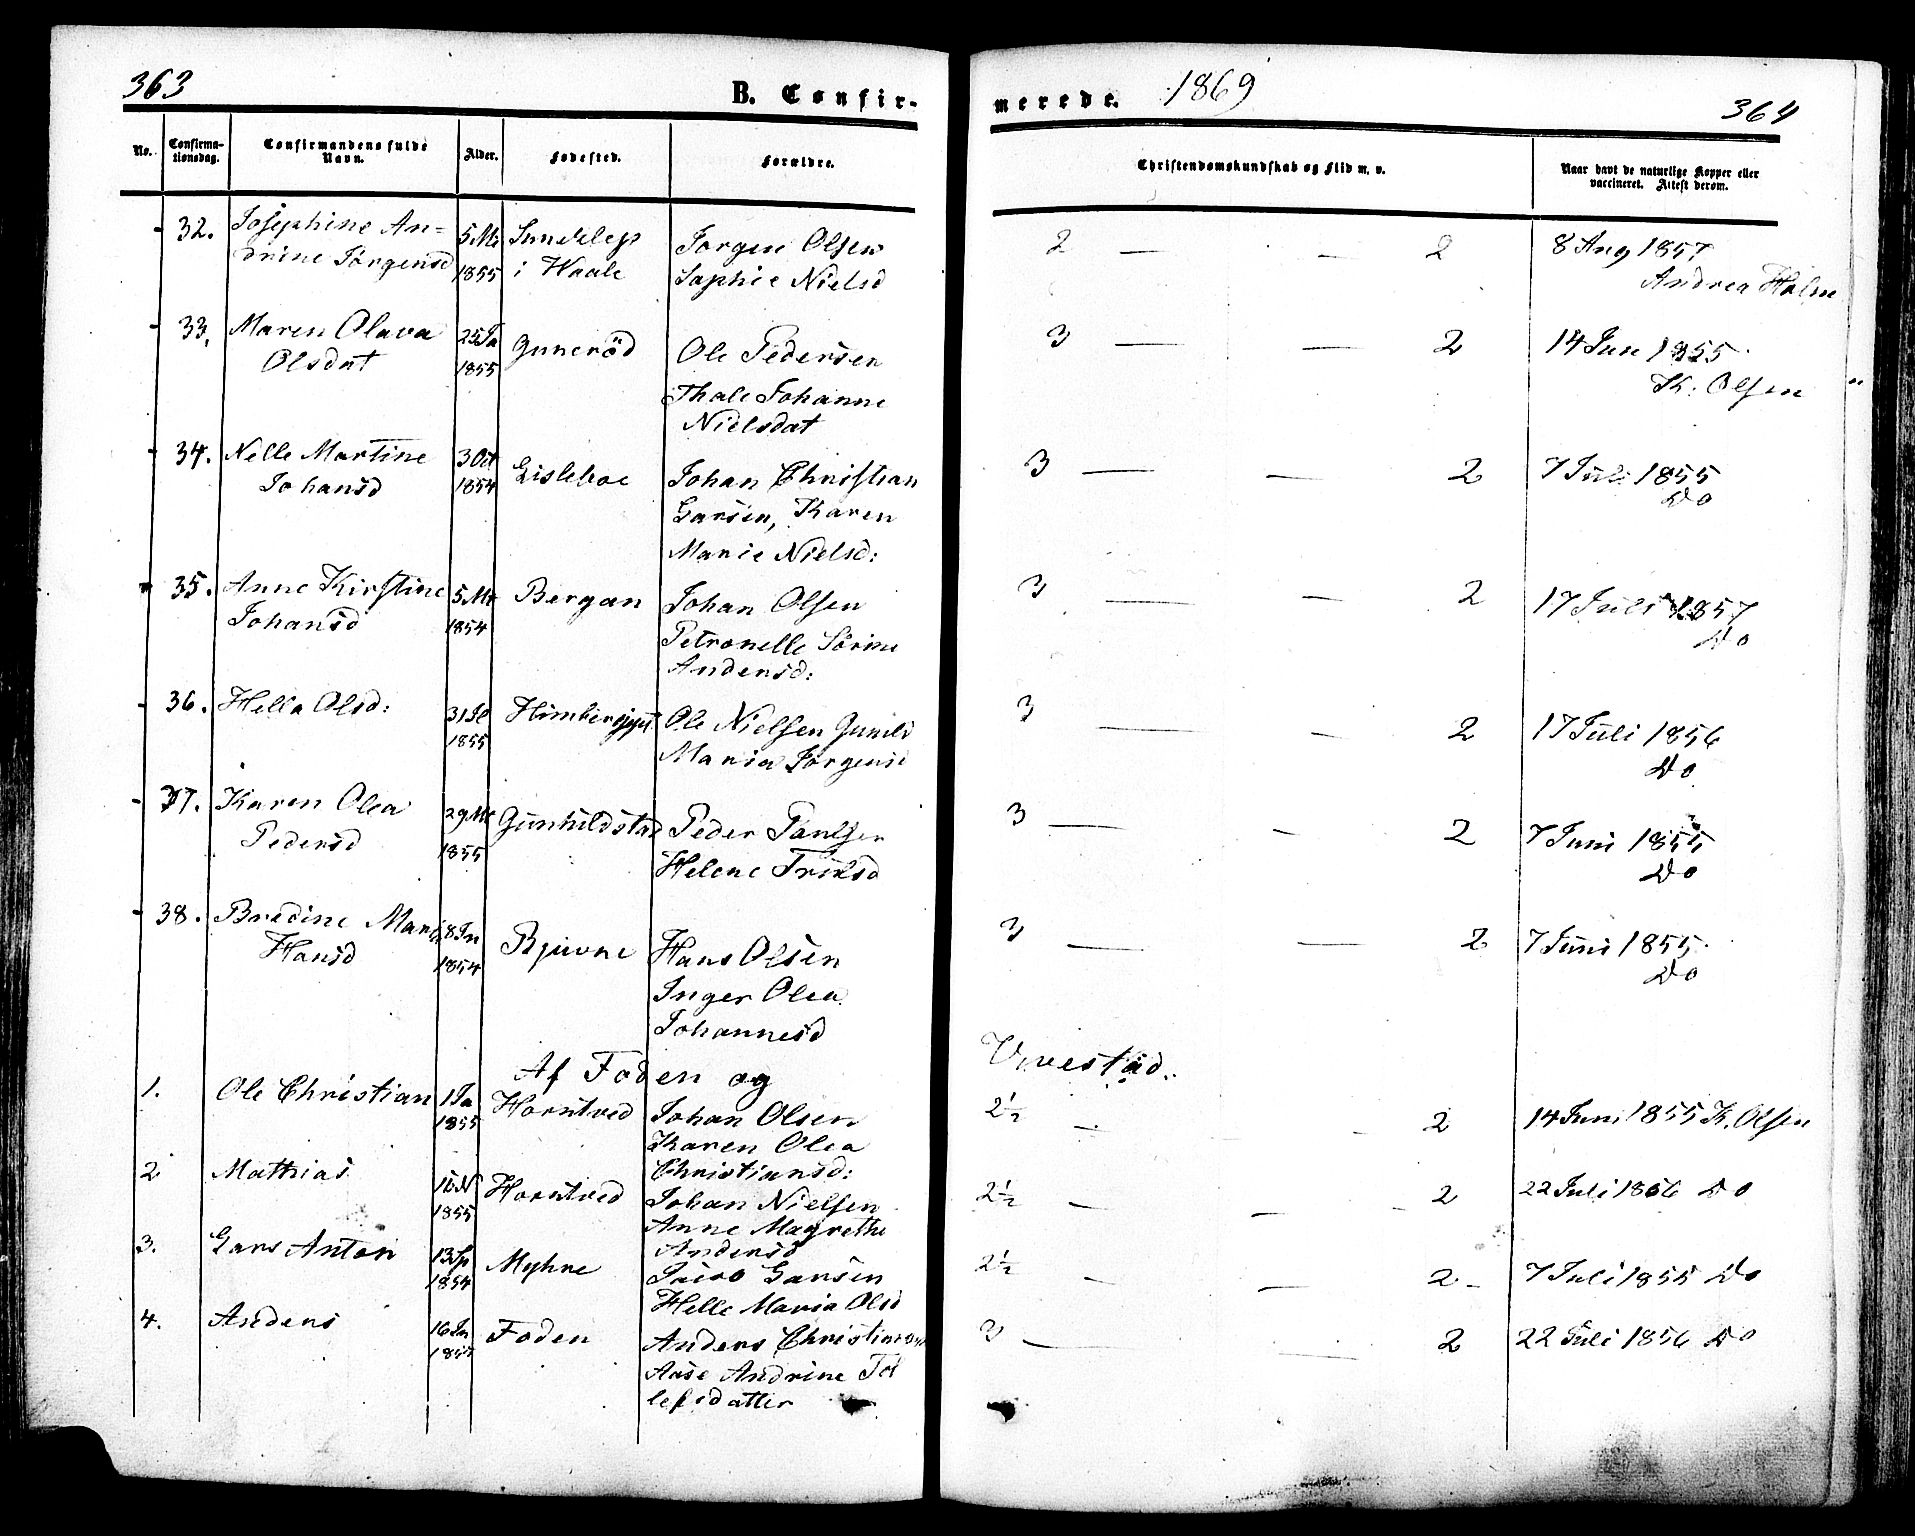 363
B. Confir-
No.
Confirma-
tionsdag.
Confirmandens fulde
Navn.
Alder.
Fødested.
Forældre.
32. Josephine An-
drine Jørgensd
5 Mi
1855
i Haale
Jørgen Olsen
Sophie Nielsd
33. Maren Olava
Olsdat
25 Ja
1855
Gunerød
Ole Pedersen
Thale Johanne
Nielsdat
34. Nelle Martine
Johansd
3 Oct
1854
Gisleboe
Johan Christian
Larsen, Karen
Marie Nielsd:
35. Anne Kirstine
Johansd
5 Mt
1854
Bergan
Johan Olsen
Petronelle Sørine
Andersd:
36. Hella Olsd:
31 Jl
1855
Ole Nielsen Gunild
Maria Jørgensd
37. Karen Olea
Pedersd
29 Mt
1855
Gunhildstad
Peder Paulsen
Helene
38. Bredine Mari
Hansd
8 Jn
1854
Bjuvne
Hans Olsen
Inger Olea
Johannesd
Af Foden og
1. Ole Christian
1 Ja
1855
Horntved
Johan Olsen
Karen Olea
Christiansd:
2 Mathias
1855
Horntved
Johan Nielsen
Anne Magrethe
Andersd
3. Lars Anton
13 Sp
1854
Myhre
Larsen
Helle Maria Olsd
4. Anders
16 Jn
1855
Foden
Anders Christiansen
Aase Andrine Tol
lefsdatter
merede.
1869
364
Christendomskundskab og Flid m. v.
Naar havt de naturlige Kopper eller
vaccineret. Attest derom.
2 — — 2 8 Aug 1857
Andrea Holm
3 — — 2 14 Jun 1855
K. Olsen
3 — — 2 7 Juli 1855
Do
3 — — 2 17 Juli 1857
Do
3 — — 2 17 Juli 1856
Do
3 — — 2 7 Juni 1855
Do
3 — — 2 7 Juni 1855
Do
Vivestad.
2½ — — 2 14 Juni 1855 K. Olsen
2½ — — 2 22 Juli 1856 Do
2½ — — 2 - 7 Juli 1855 Do
3 — — 2 22 Juli 1856 Do